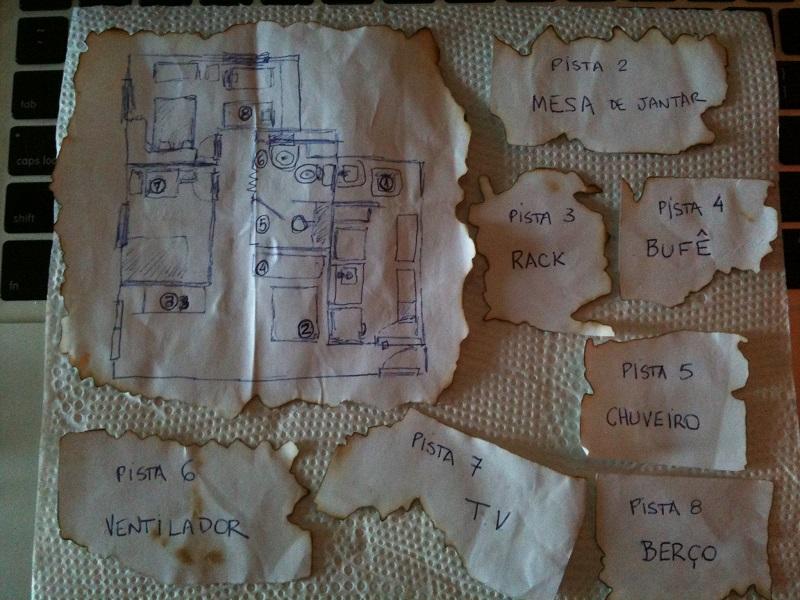 tab
caps lo
shift
fn
8
7
6
1
5
4
3
2
PISTA 2
MESA DE JANTAR
PISTA 3
RACK
PISTA 4
BUFÊ
PISTA 5
CHUVEIRO
PISTA 6
VENTILADOR
PISTA 7
TV
PISTA 8
BERÇO